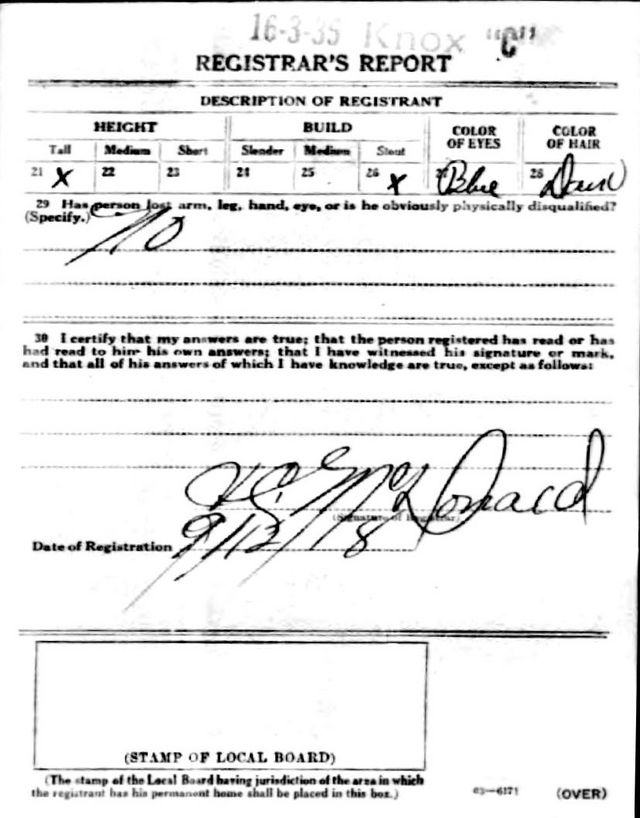 16-3-35 Knox "C"
REGISTRAR'S REPORT
DESCRIPTION OF REGISTRANT
HEIGHT BUILD COLOR OF EYES COLOR OF HAIR
Tall Medium Short Slender Medium Stout
21 X 22 23 24 25 26 X 27 Blue 28
29 Has person lost arm, leg, hand, eye, or is he obviously physically disqualified?
(Specify.) No
30 I certify that my answers are true; that the person registered has read or has
had read to him his own answers; that I have witnessed his signature or mark,
and that all of his answers of which I have knowledge are true, except as follows:
McDonald
(Signature of Registrar)
Date of Registration 9/12/18
(STAMP OF LOCAL BOARD)
(The stamp of the Local Board having jurisdiction of the area in which
the registrant has his permanent home shall be placed in this box.)
03—6171 (OVER)